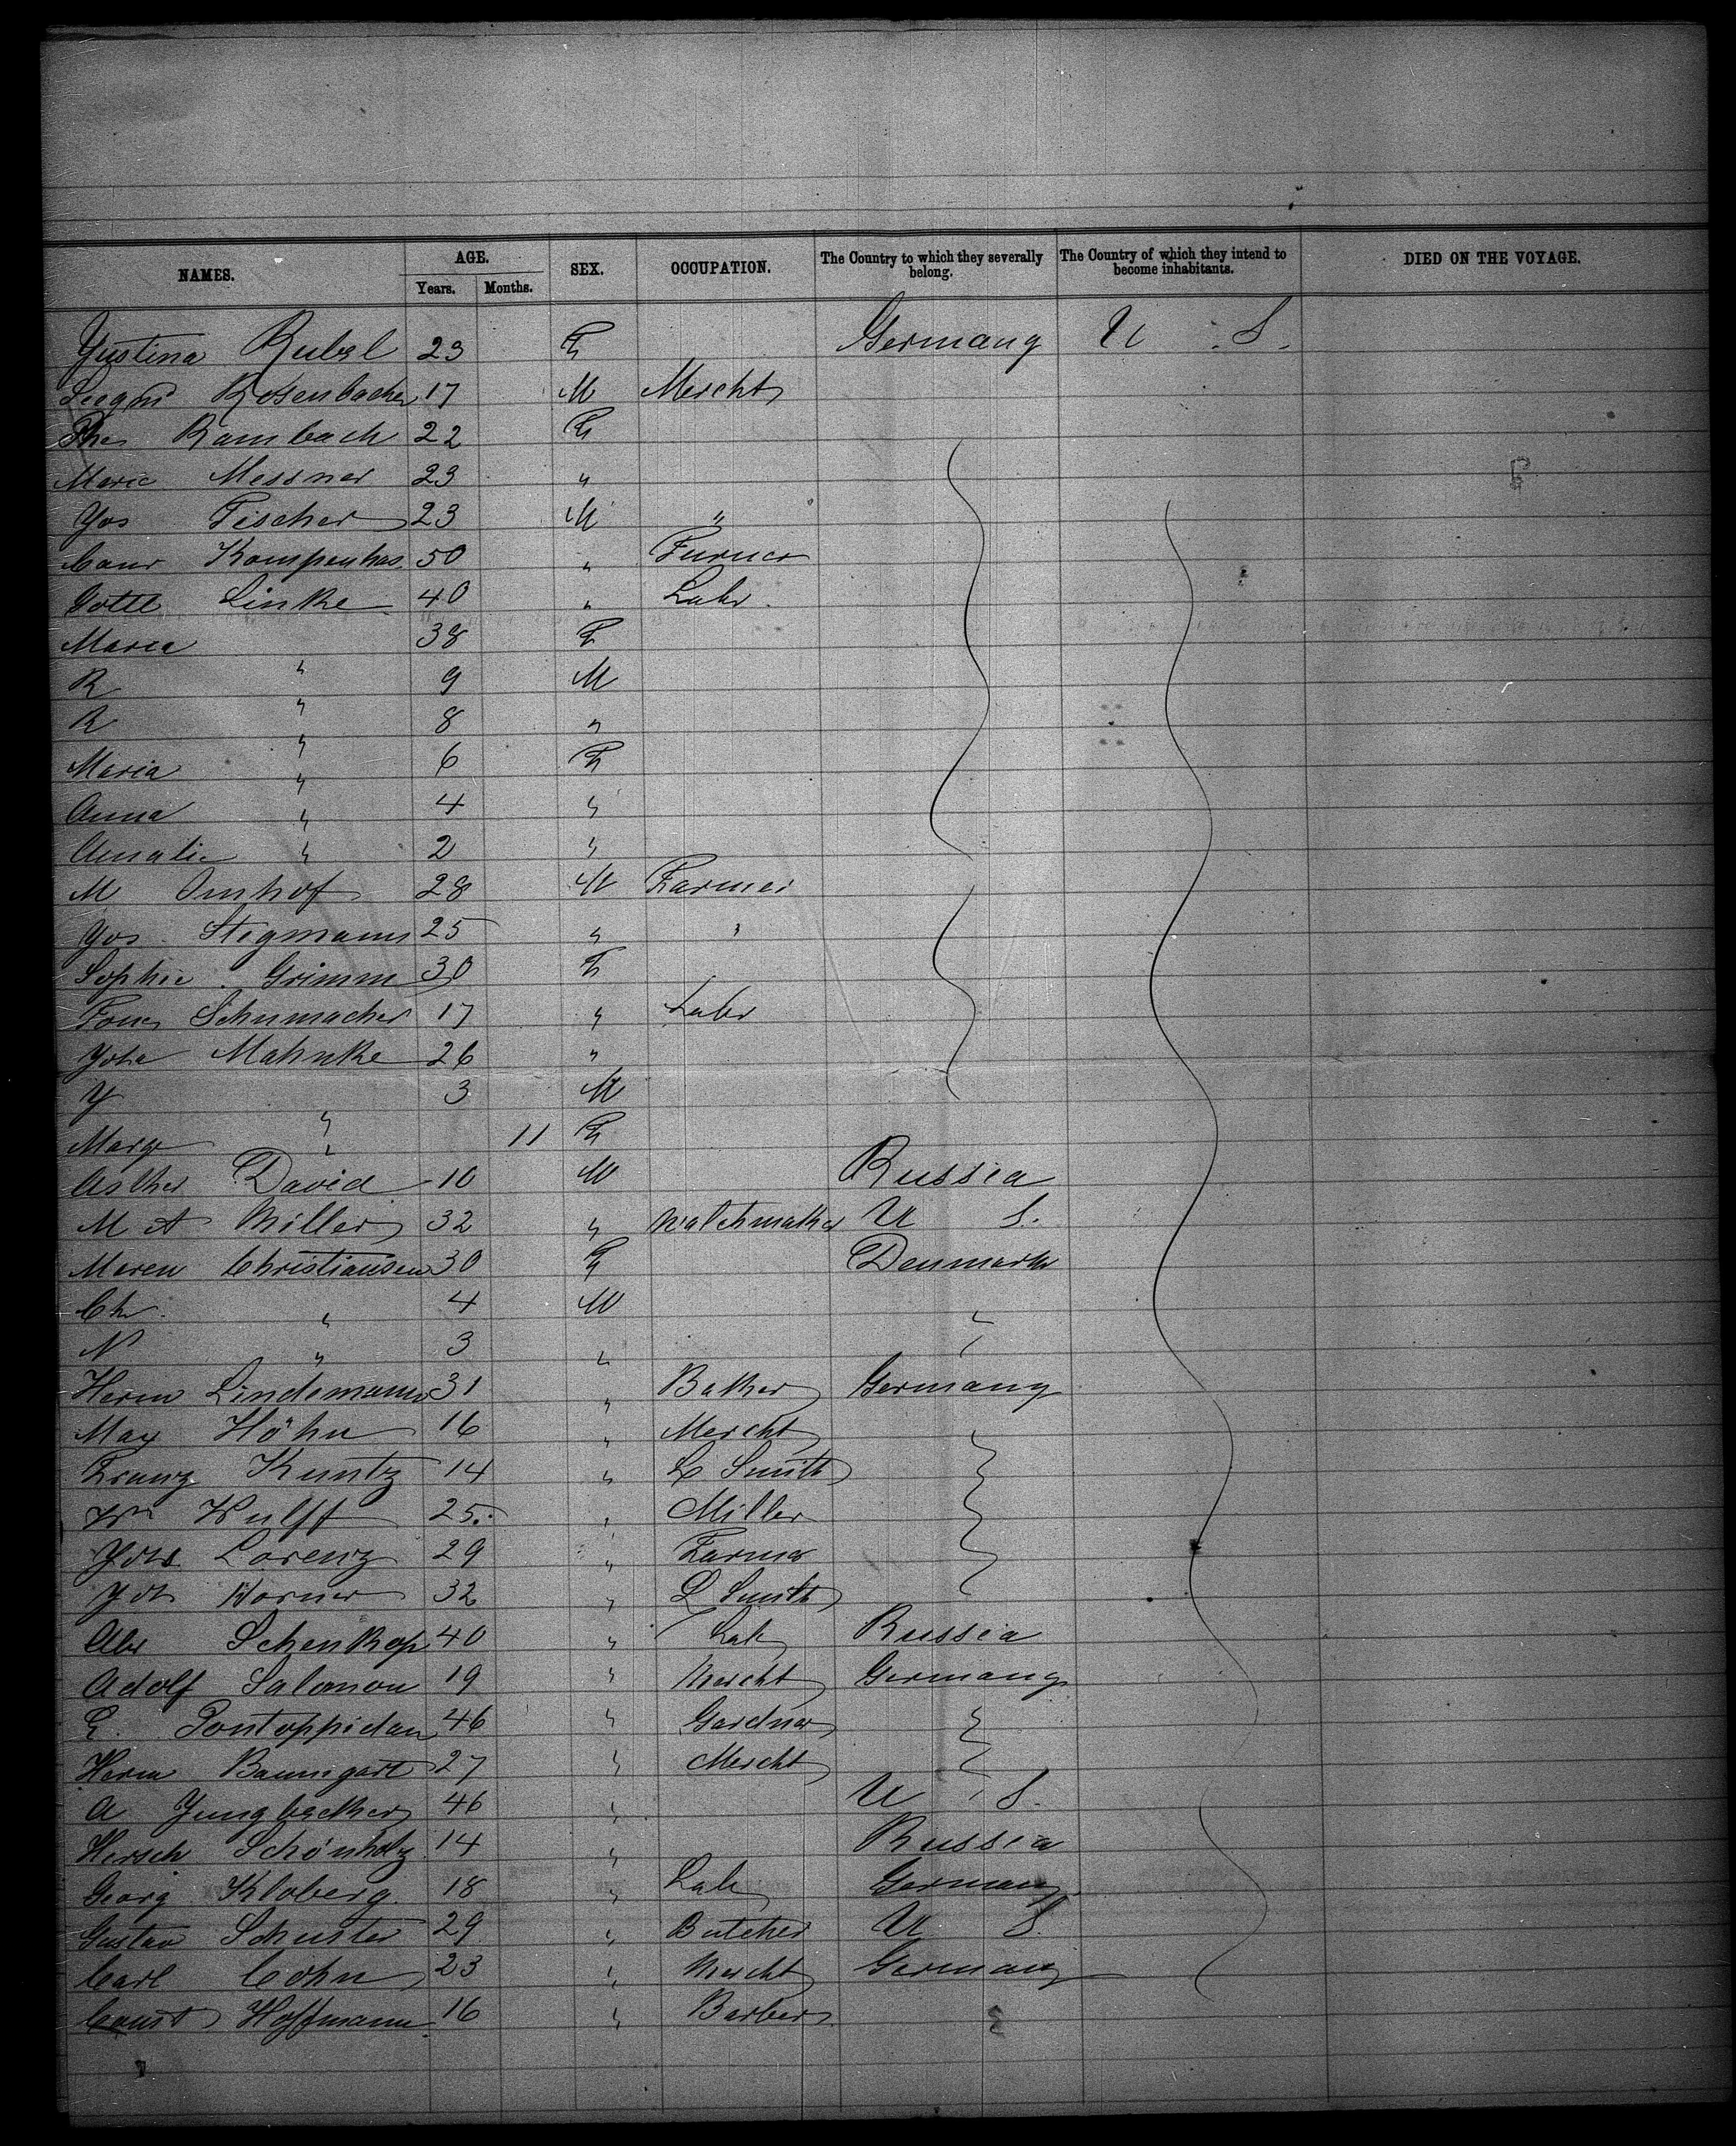 NAMES. AGE. Years. Months. SEX. OCCUPATION. The Country to which they severally belong. The Country of which they intend to become inhabitants. DIED ON THE VOYAGE.
Justina Rubel 23 F Germany U S.
Rosenbacher 17 M Mercht
Rambach 22 F
Marie Messner 23 "
Jos Fischer 23 M "
Kampenhas 50 " Furner
Gottl Linke 40 " Labr.
Maria " 38 F
R " 9 M
R " 8 "
Maria " 6 F
Anna " 4 "
Amalie " 2 "
M Imhof 28 M Farmer
Jos. Stegmann 25 " "
Sophie Grimm 30 F
Schumacher 17 " Labr
Joha Mahnke 26 "
J " 3 M
Marg " 11 F
David 10 M Russia
M A Miller 32 " Watchmaker U S.
Maren Christiansen 30 F Denmark
Ch. " 4 M "
N " 3 " "
Herm Lindemann 31 " Baker Germany
Max Höhn 16 " Mercht
Franz Kuntz 14 " L Smith
Wm Wulff 25. " Miller
Johs Lorenz 29 " Farmer
Joh Korner 32 " L Smith
Abr Schenkop 40 " Lab Russia
Adolf Salomon 19 " Mercht Germany
E. Pontoppidan 46 " Gardner
Herm Baumgart 27 " Mercht
A Jungbecker 46 " U S.
Hersch Schönholz 14 " Russia
Georg Kloberg 18 " Lab Germany
Gustav Schuster 29 " Butcher U S.
Carl Cohn 23 " Mercht Germany
Hoffmann 16 " Barber